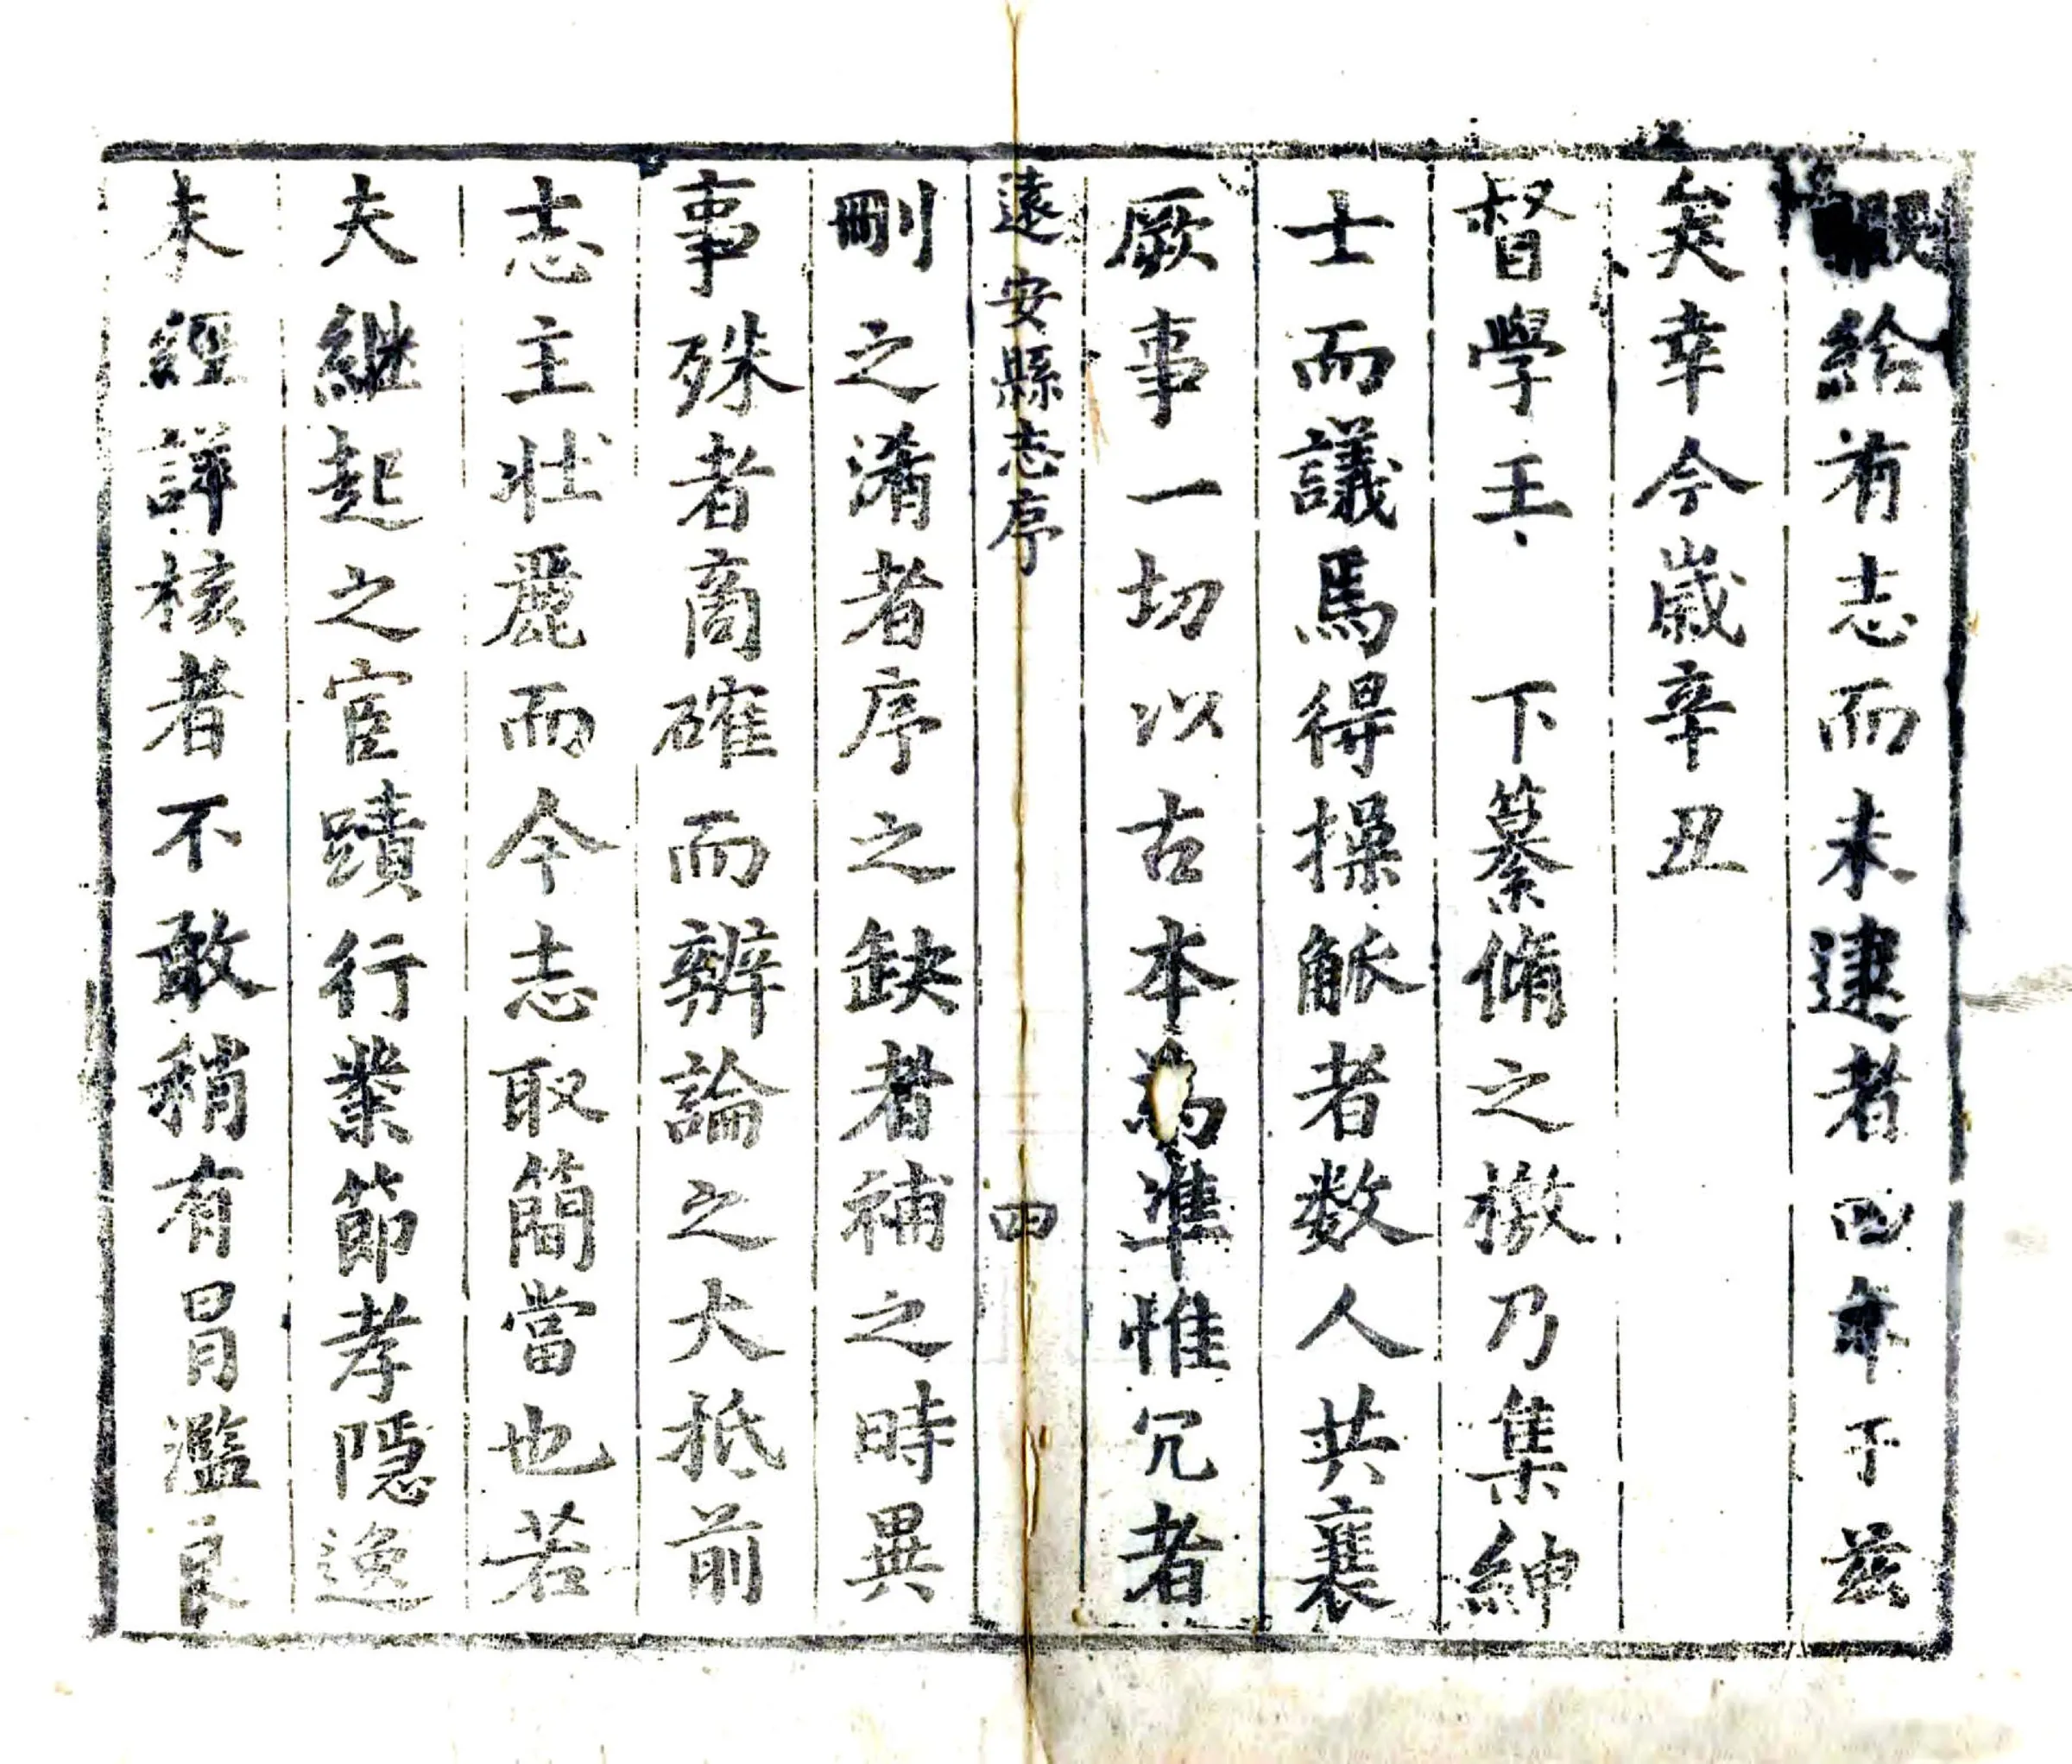 給有志而未逮者四年于茲
矣幸今嵗辛丑
督學王 下纂脩之檄乃集紳
士而議焉得操觚者数人共襄
厥事一切以古本為準惟冗者
遠安縣志序 四
刪之淆者序之缺者補之時異
事殊者商確而辨論之大抵前
志主壮麗而今志取簡當也若
夫継起之宦蹟行業節孝隠逸
未經詳核者不敢稍有冒濫良